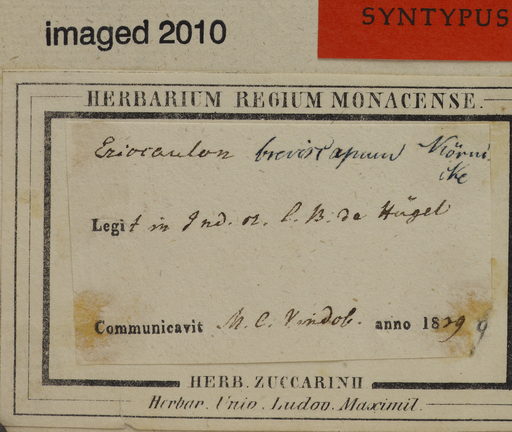 imaged 2010
SYNTYPUS
HERBARIUM REGIUM MONACENSE.
Eriocaulon breviscapum Körni
cke
Legit in Ind. or. C. B. de Hügel
Communicavit M. C. Vindob. anno 1839
HERB. ZUCCARINII
Herbar. Univ. Ludov. Maximil.